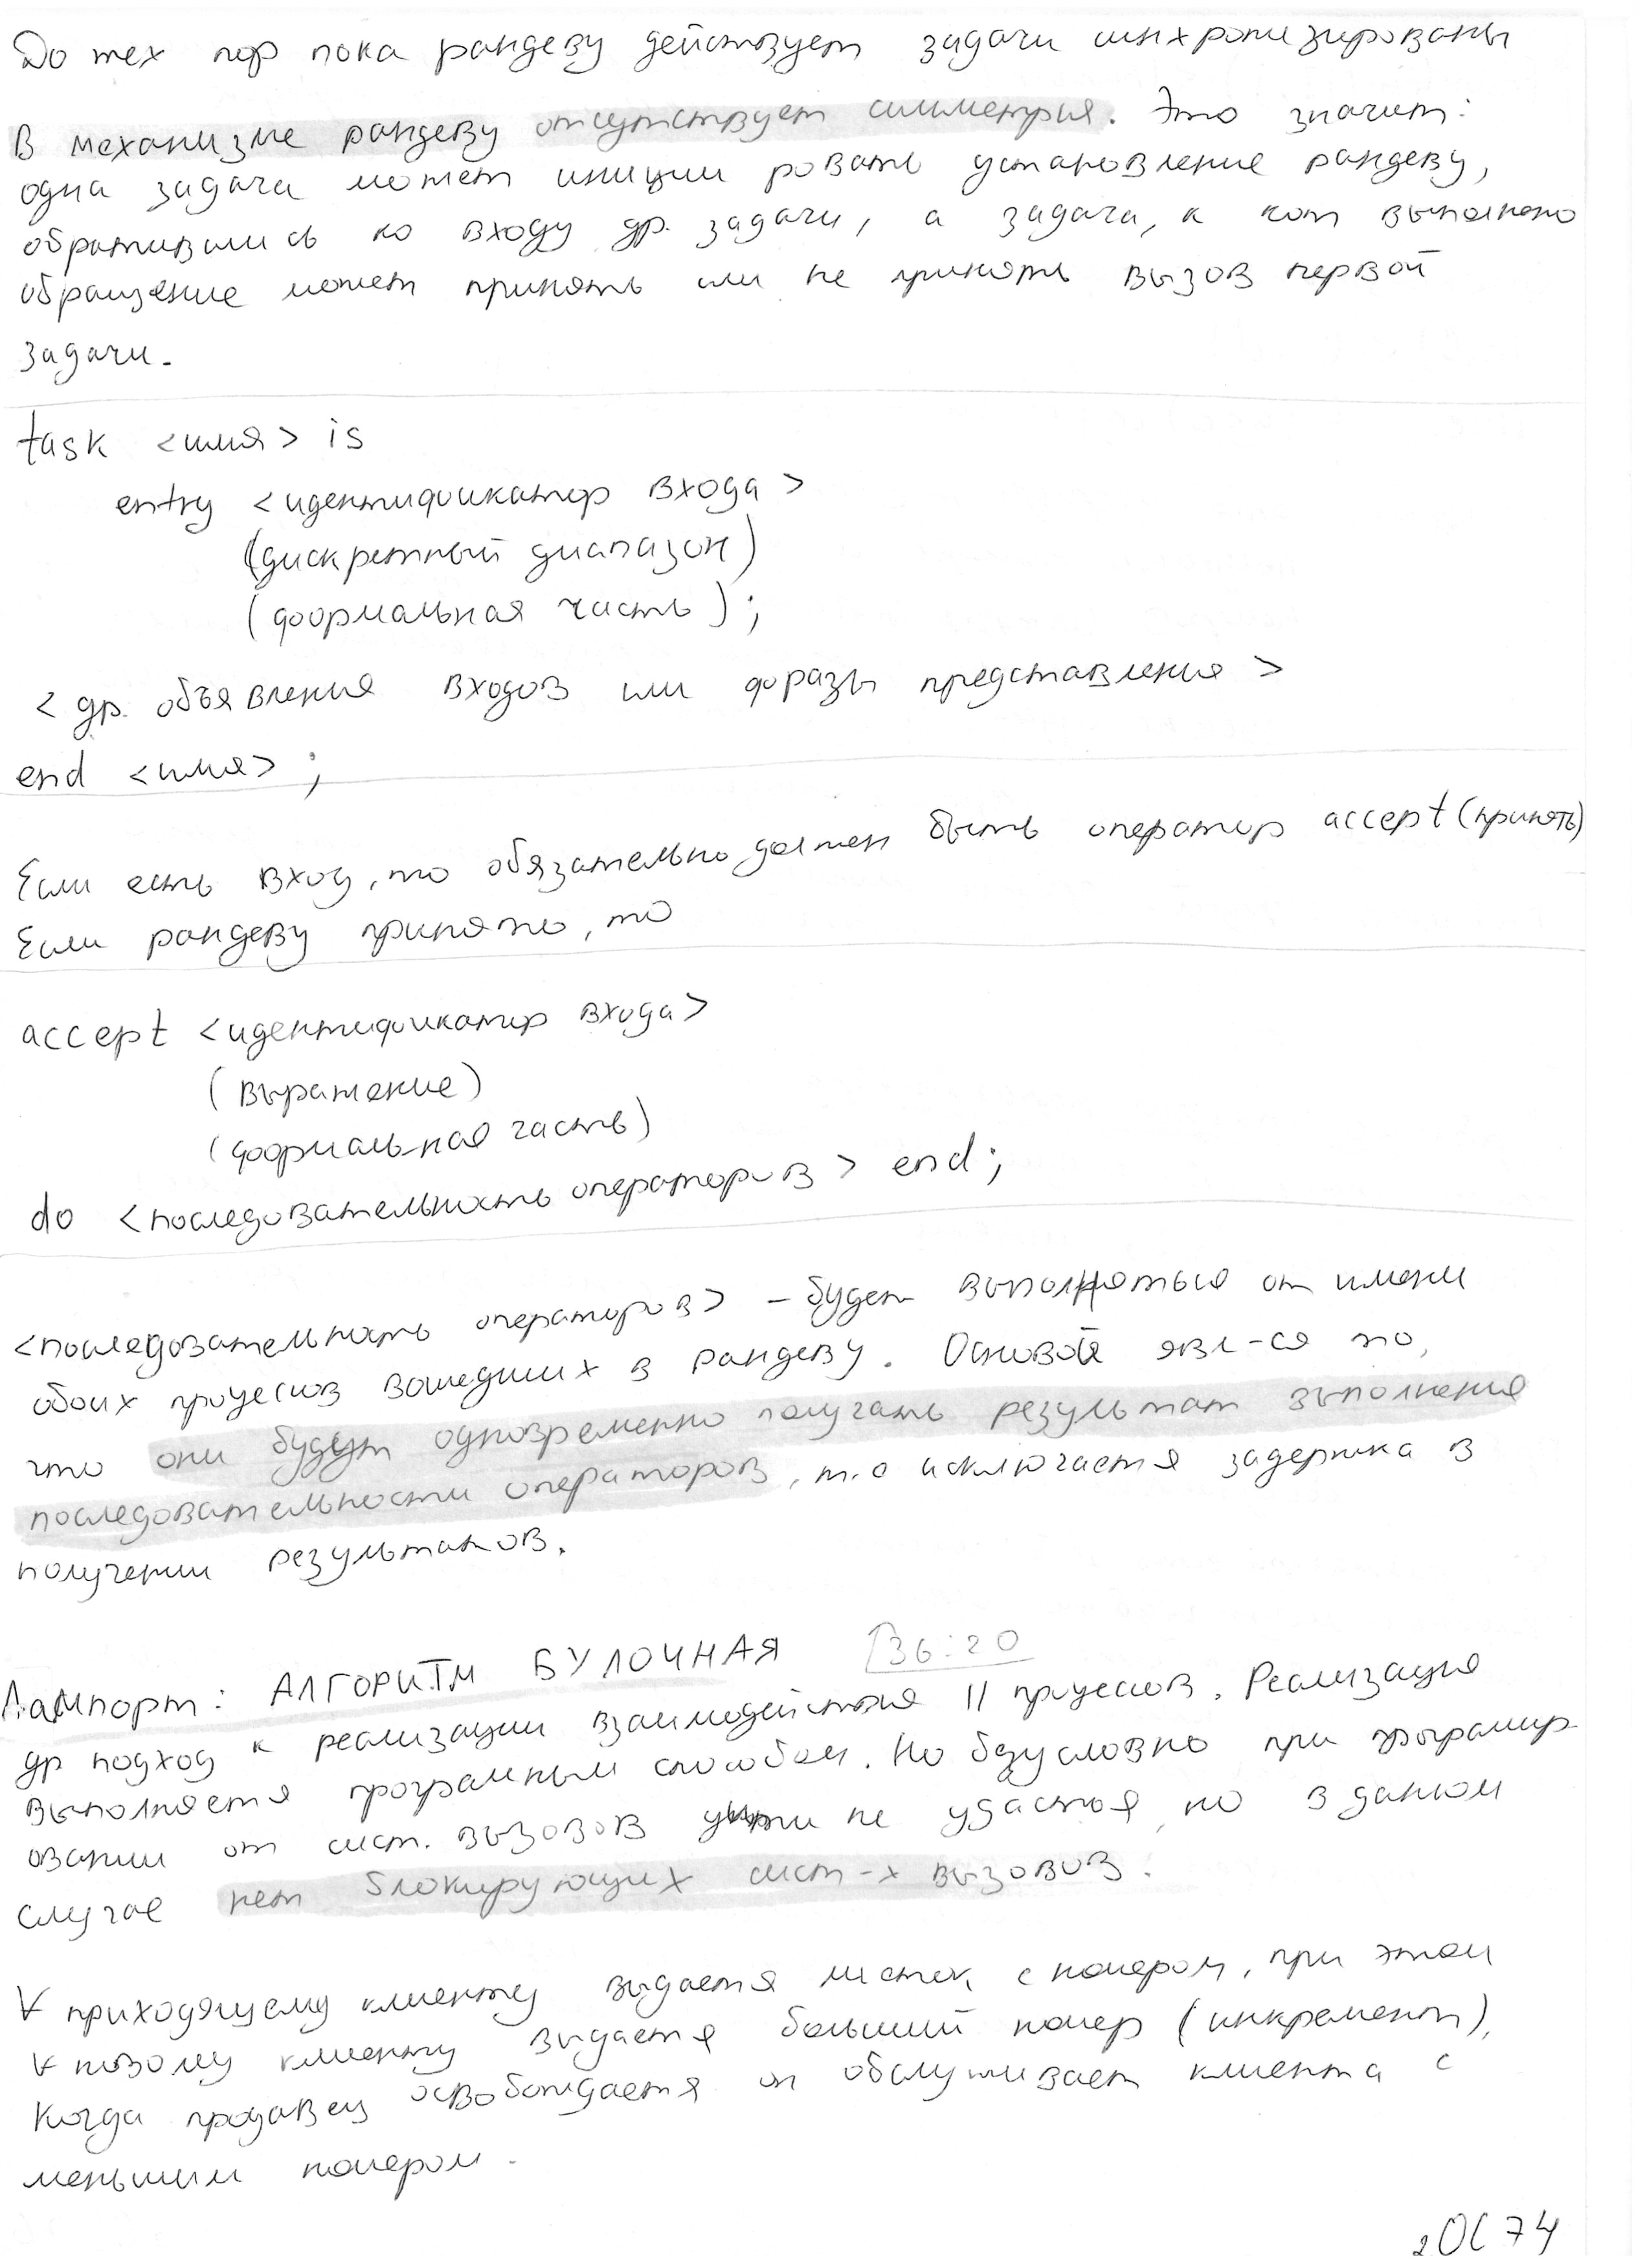 До тех пор пока рандеву действует задачи синхронизированы
В механизме рандеву отсутствует симметрия. Это значит:
одна задача может иниции ровать установление рандеву,
обратившись ко входу др. задачи, а задача, к кот выполнено
обращение может принять или не принять вызов первой
задачи.
task <имя> is
entry <идентификатор входа>
(дискретный диапазон)
(формальная часть);
<др. объявления входов или фразы представления>
end <имя>;
Если есть вход, то обязательно должен быть оператор accept (принять)
Если рандеву принято, то
accept <идентификатор входа>
(выражение)
(формальная часть)
do <последовательность операторов> end;
<последовательность операторов> - будет выполняться от имени
обоих процессов вошедших в рандеву. Основой явл-ся то,
что они будут одновременно получать результат выполнения
последовательности операторов, т.о исключается задержка в
получении результатов.
Лампорт: АЛГОРИТМ БУЛОЧНАЯ 36:20
др подход к реализации взаимодействия || процессов. Реализация
выполняется програмным способом. Но безусловно при програмир
овании от сист. вызовов уйти не удастся, но в даном
случае нет блокирующих сист-х вызовов.
∀ приходящему клиенту выдается листок с номером, при этом
∀ новому клиенту выдается больший номер (инкремент),
Когда продавец освобождается он обслуживает клиента с
меньшим номером.
2ОС 74